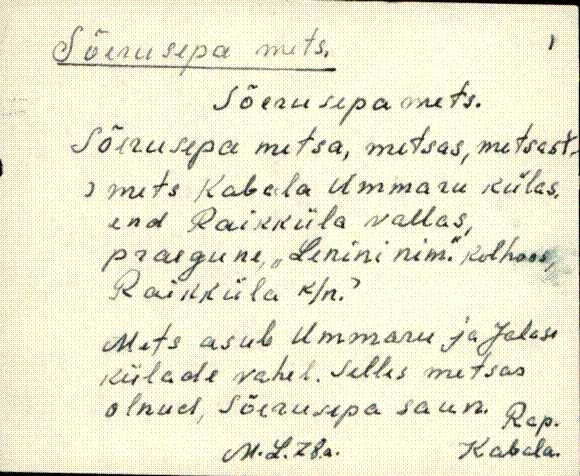 Sõerusepa mets.
Sõerusepa mets.
Sõerusepa metsa, metsas, metsast,
mets Kabala Ummaru külas,
end Raikküla vallas,
praegune, „Lenini nim." kolhoos,
Raikküla k/n.
Mets asub Ummaru ja Jalase
külade vahel. Selles metsas
olnud, Sõerusepa saun.
Rap.
M.L. 78.a.
Kabala.